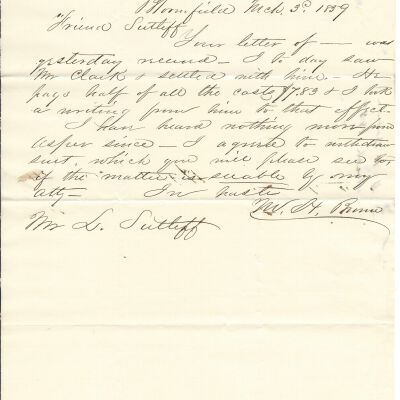 Bloomfield Mch. 3d 1859
Friend Sutliff
Your letter of — was
yesterday received — I to day saw
Mr Clark & settled with him — He
pays half of all the costs $7.83 & I took
a writing from him to that effect.
I have heard nothing more from
Asper since — I agreed to withdraw
suit, which you will please see to
if the matter is suable by my
atty — In haste
Mr L. Sutliff